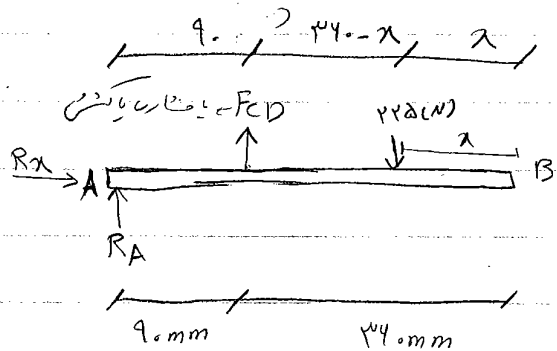 ۹۰ ۳۶۰-x x
یا فشاری یا کششی FCD
۲۲۵(N)
x
Rx A B
RA
۹۰mm ۳۶۰mm